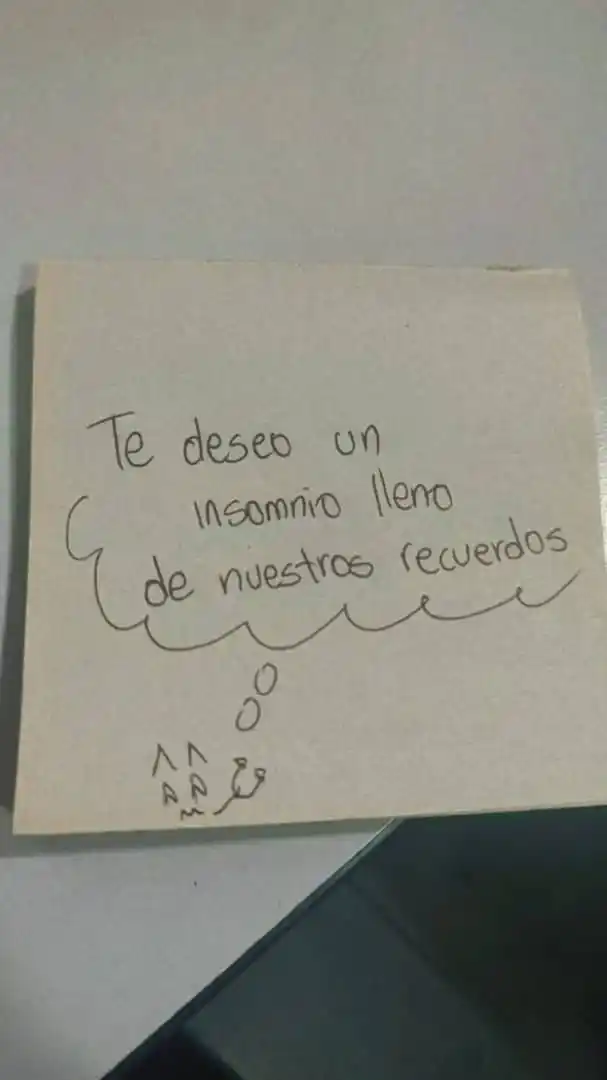 Te deseo un
insomnio lleno
de nuestros recuerdos